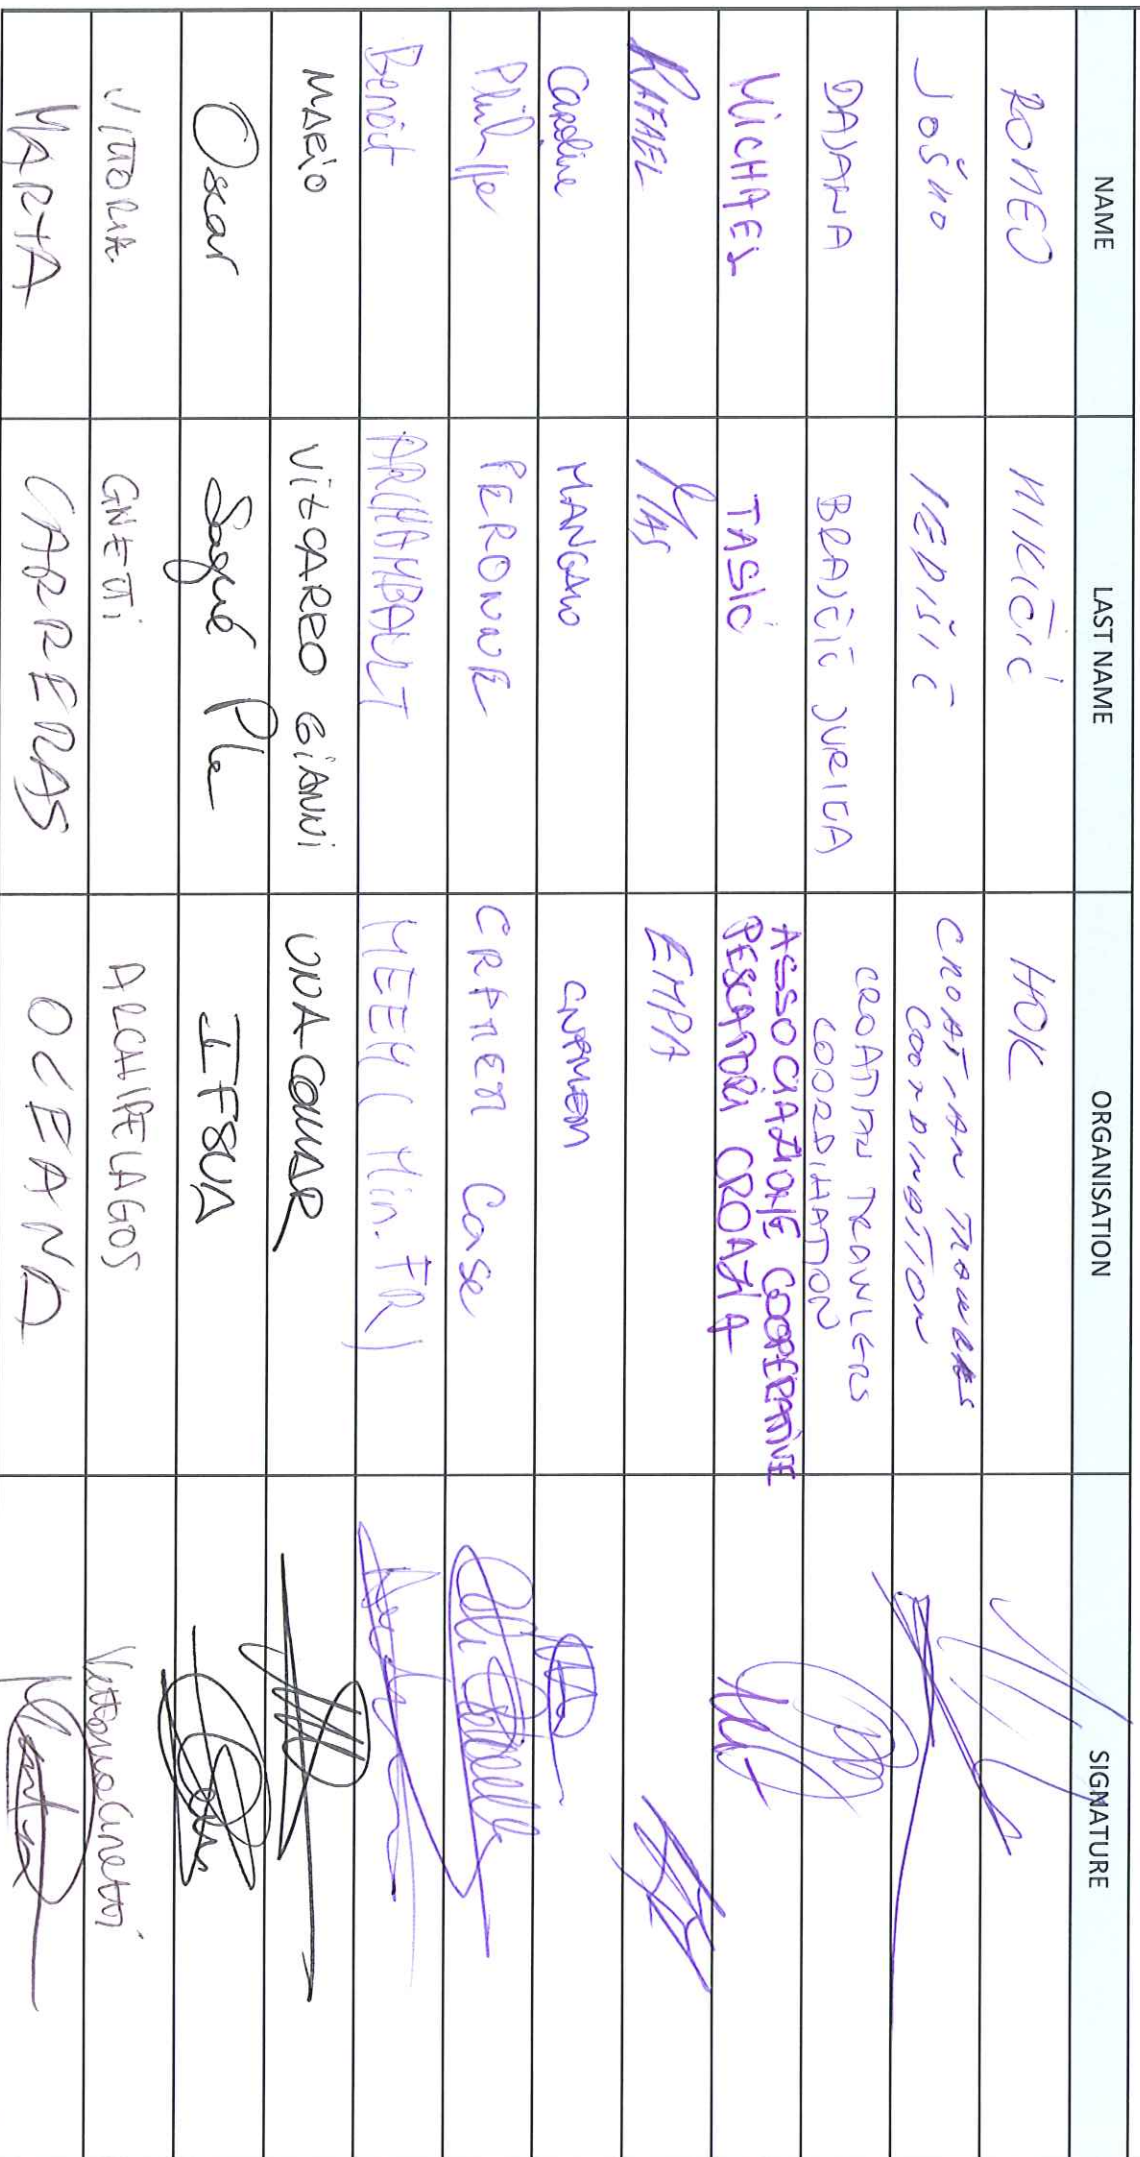 NAME LAST NAME ORGANISATION SIGNATURE
ROMEO MIKIČIĆ HOK
JOŠKO CROATIAN
COORDINATION
DAJANA BRAJČIĆ JURICA CROATIAN TRAWLERS
COORDINATION
MICHAEL TASIĆ ASSOCIAZIONE COOPERATIVE
PESCATORI CROAZIA
RAFAEL MAS EMPA
Caroline MANGALO CNPMEM
Philippe PERONNE CRPMEM Case
Benoit ARCHAMBAULT MEEM (Min. FR)
MARIO VIZCARRO GIANNI UNACOMAR
Oscar Sagué Pla IFSUA
VITTORIA GNETTI ARCHIPELAGOS Vittoria Gnetti
MARTA CARRERAS OCEANA